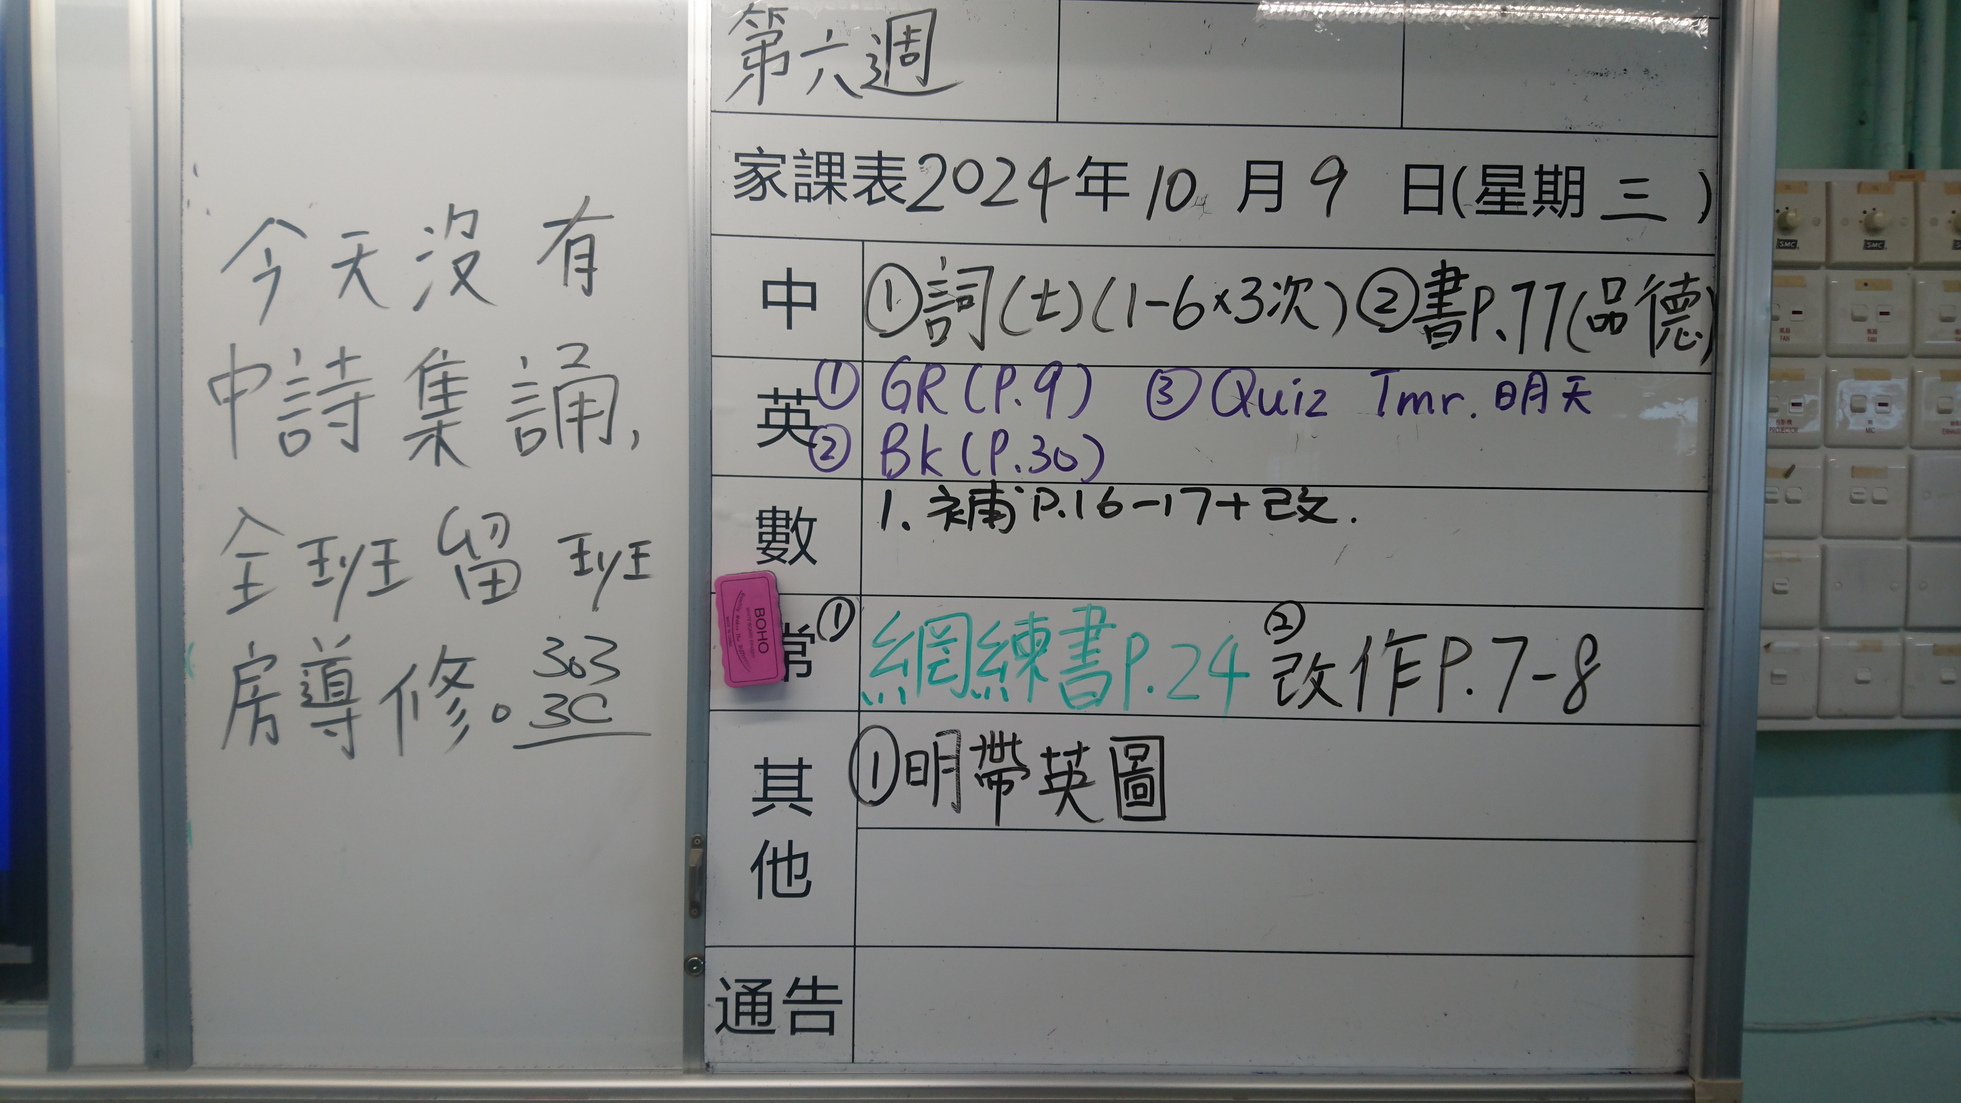 今天沒有
中詩集誦,
全班留班
房導修。303
3C
第六週
家課表2024年10月9日(星期三)
中 ①詞(七)(1-6×3次)②書P.77(品德)
英 ① GR(P.9) ③ Quiz Tmr. 明天
② Bk(P.30)
數 1. 補P.16-17+改.
常 ① 網練書P.24 ② 改作P.7-8
其他 ①明帶英圖
通告
BOHO
SMC
SMC
FAN
FAN
PROJECTOR
MC